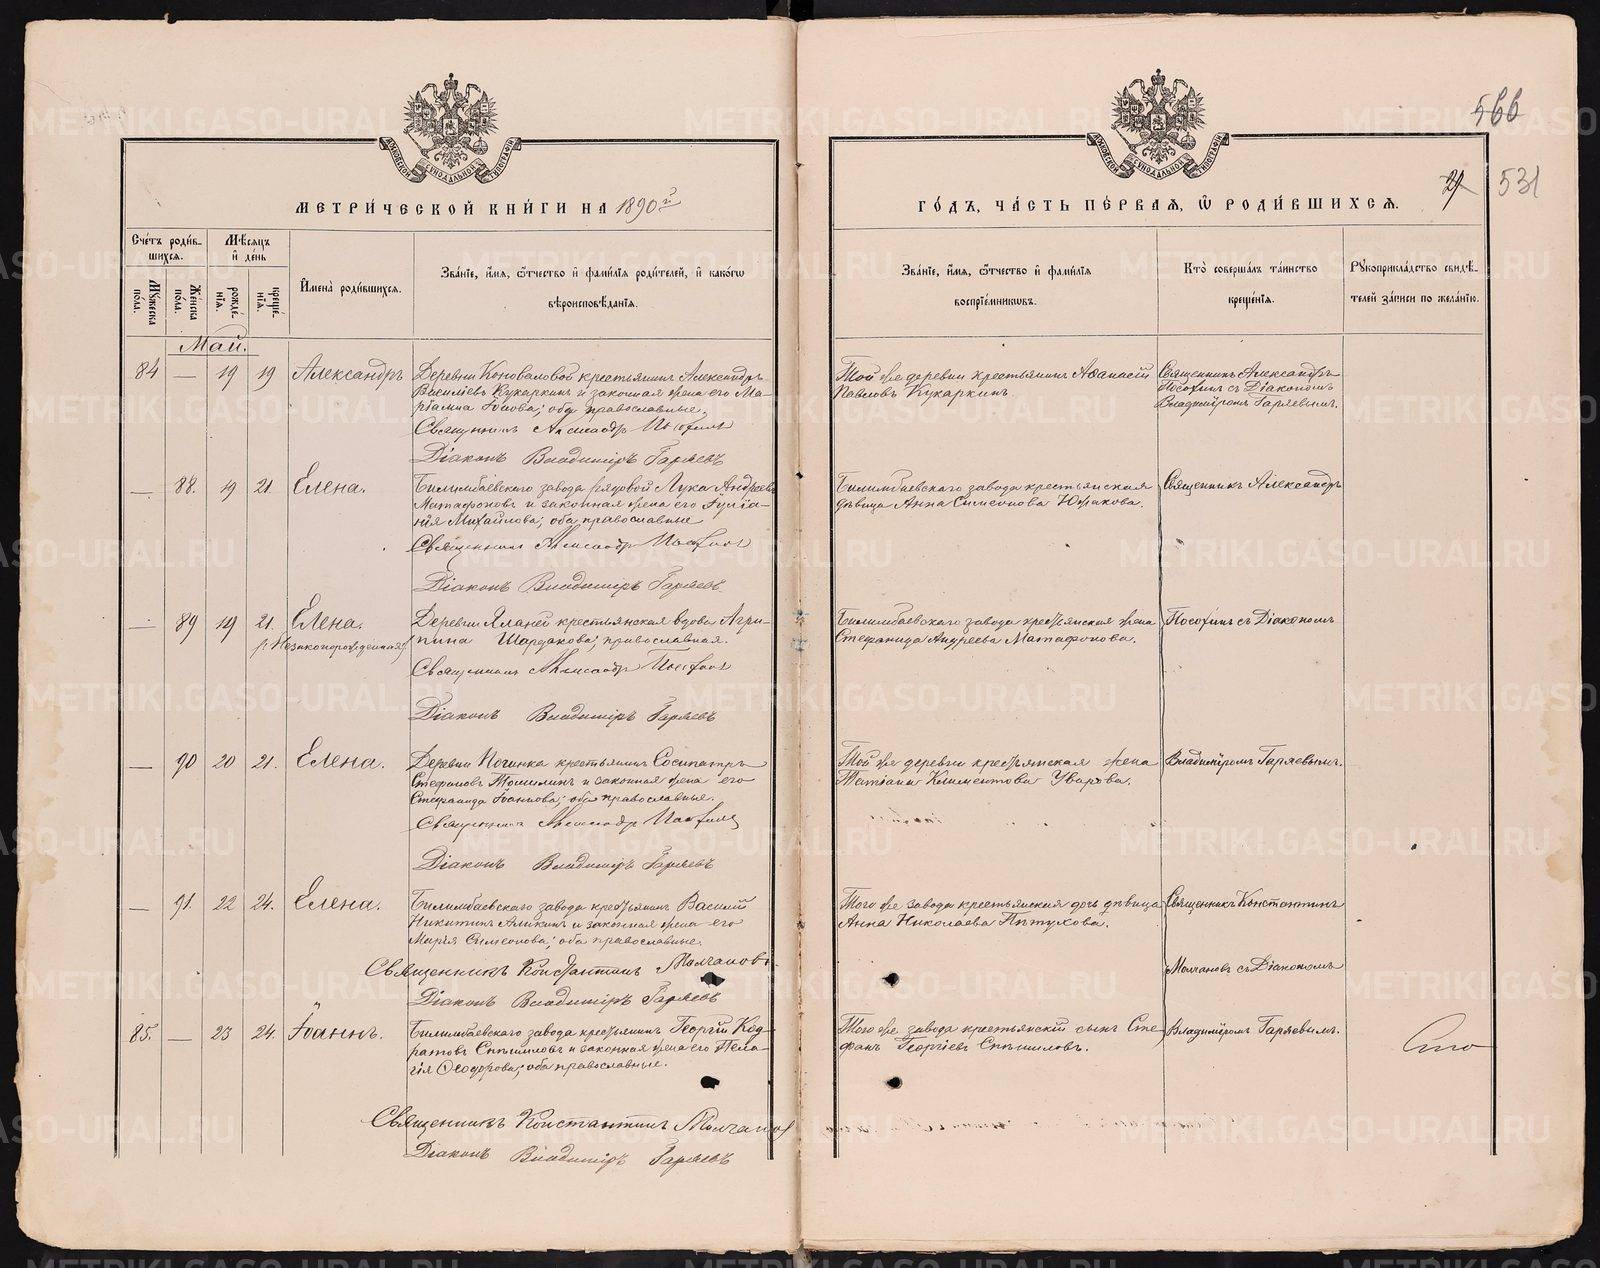 566
21 531
МЕТРИ́ЧЕСКОЙ КНИ́ГИ НА 1890й
ГО́ДЪ, ЧА́СТЬ ПЕ́РВАЯ, Ѿ РОДИ́ВШИХСЯ.
Сче́тъ роди́вшихся.
Мꙋжеска по́ла.
Же́нска по́ла.
Мѣ́сяцъ и де́нь
рожде́нїя.
креще́нїя.
И҆мена̀ роди́вшихся.
Зва́нїе, и҆́мя, ѻ҆́тчество и҆ фами́лїя роди́телей, и҆ како́гѡ вѣроисповѣ́данїя.
Зва́нїе, и҆́мя, ѻ҆́тчество и҆ фами́лїя воспрїе́мникѡвъ.
Кто̀ соверша́лъ та́инство креще́нїя.
Рꙋкоприкла́дство свидѣ́телей за́писи по жела́нїю.
Май.
84 — 19 19 Александръ
Деревни Коноваловой крестьянинъ Александръ
Василіевъ Кухаркинъ и законная жена его Ма-
ріамна Іовова; оба православные.
Священникъ Александр Посохин
Діаконъ Владиміръ Гаряевъ
Той же деревни крестьянинъ Аѳанасій
Павловъ Кухаркинъ
Священникъ Александръ
Посохинъ съ Діакономъ
Владиміромъ Гаряевымъ.
— 88. 19 21 Елена.
Билимбаевскаго завода рядовой Лука Андреевъ
Матафоновъ и законная жена его Іуліа-
нія Михайлова; оба православные
Священник Александр Посохин
Діаконъ Владиміръ Гаряевъ
Билимбаевскаго завода крестьянская
дѣвица Анна Симеонова Южакова.
Священникъ Александръ
— 89 19 21. Елена.
(Незаконорожденная)
Деревни Яланей крестьянская вдова Агри-
пина Шардакова; православная.
Священник Александр Посохин
Діаконъ Владиміръ Гаряевъ
Билимбаевскаго завода крестьянская жена
Стефанида Андреева Матафонова.
Посохинъ съ Діакономъ
— 90 20 21. Елена.
Деревни Починка крестьянинъ Сосипатръ
Стефановъ Томилинъ и законная жена его
Стефанида Іоаннова; оба православные.
Священникъ Александр Посохин
Діаконъ Владиміръ Гаряевъ
Той же деревни крестьянская жена
Татіана Климентова Уварова.
Владиміромъ Гаряевымъ.
— 91. 22 24. Елена.
Билимбаевскаго завода крестьянинъ Василій
Никитинъ Аликинъ и законная жена его
Марія Симеонова; оба православные.
Священникъ Константинъ Молчановъ
Діаконъ Владиміръ Гаряевъ
Того же завода крестьянская дочь дѣвица
Анна Николаева Пѣтухова.
Священникъ Константинъ
Молчановъ съ Діакономъ
85. — 23 24. Іоаннъ.
Билимбаевскаго завода крестьянинъ Георгій Код-
ратовъ Спѣшиловъ и законная жена его Пела-
гія Ѳеодорова; оба православные.
Священникъ Константинъ Молчанов
Діаконъ Владиміръ Гаряевъ
Того же завода крестьянскій сынъ Сте-
фанъ Георгіевъ Спѣшиловъ.
Владиміромъ Гаряевымъ.
METRIKI.GASO-URAL.RU